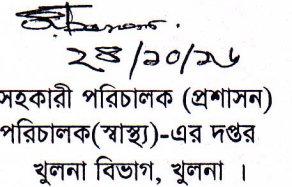 ২৪/১০/১৬
সহকারী পরিচালক (প্রশাসন)
পরিচালক(স্বাস্থ্য)-এর দপ্তর
খুলনা বিভাগ, খুলনা ।